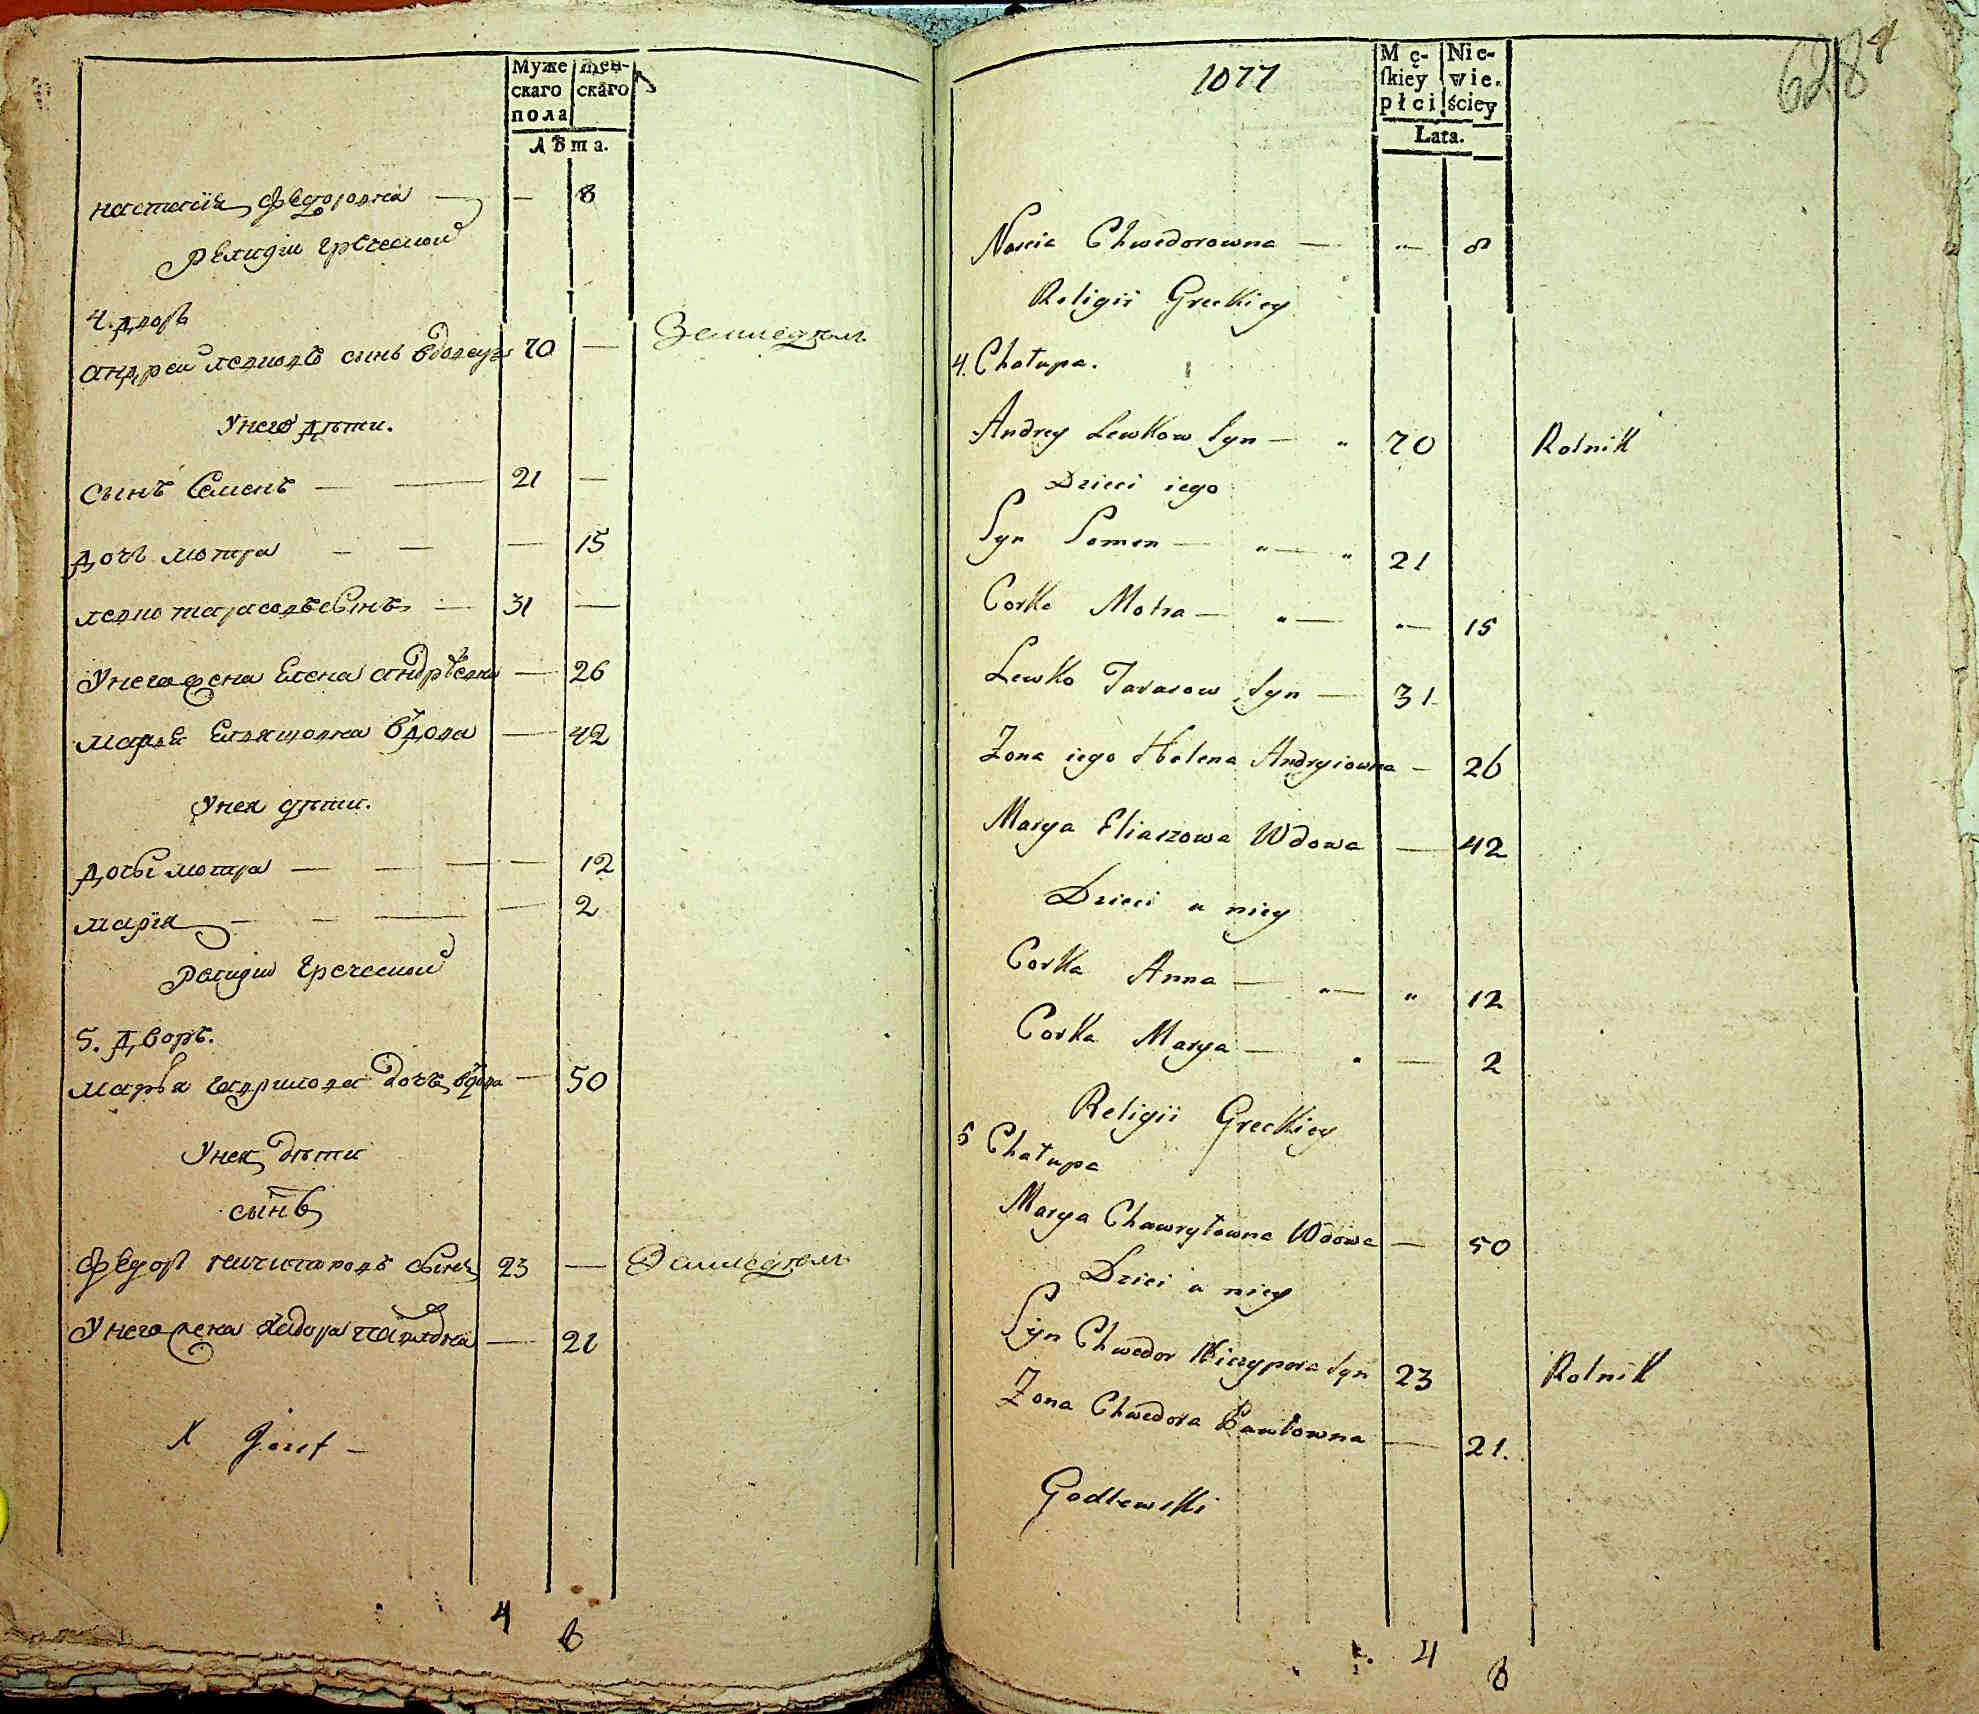 Муже
скаго
пола
жен-
скаго
Лѣта.
настасія федоровна — — 8
религіи греческой
4. дворъ
андрей левковъ сынъ вдовецъ 70 — Земледѣлъ
У него дѣти.
сынъ Семенъ — — 21 —
дочь мотра — — — 15
левко тарасовъ сынъ — 31 —
У него жена Елена андрѣевна — 26
марья Еліяшовна вдова — 42
У нея дѣти.
дочь мотра — — — — 12
марія — — — — 2
религіи греческой
5. дворъ.
марья гаврилова дочь вдова — 50
У нея дѣти
сынъ
федоръ ничипоровъ сынъ 23 — Земледѣлъ
У него жена хведора павловна — 21
X Jozef —
4 6
1077
Mę-
ſkiey
płci
Nie-
wie-
ściey
Lata.
628
4
Nascia Chwedorowna — " — 8
Religii Greckiey
4. Chałupa.
Andrey Lewkow Syn — " 70 Rolnik
Dzieci iego
Syn Semen — " — " 21
Corka Motra — " — " — 15
Lewko Tarasow Syn — 31.
Zona iego Helena Andryiowna — 26
Marya Eliaszowa Wdowa — 42
Dzieci u niey
Corka Anna — " — " 12
Corka Marya — " — 2
Religii Greckiey
5 Chałupa
Marya Chawryłowna Wdowa — 50
Dzieci u niey
Syn Chwedor Niczypora Syn 23 Rolnik
Zona Chwedora Pawłowna — 21.
Godlewski
4 6